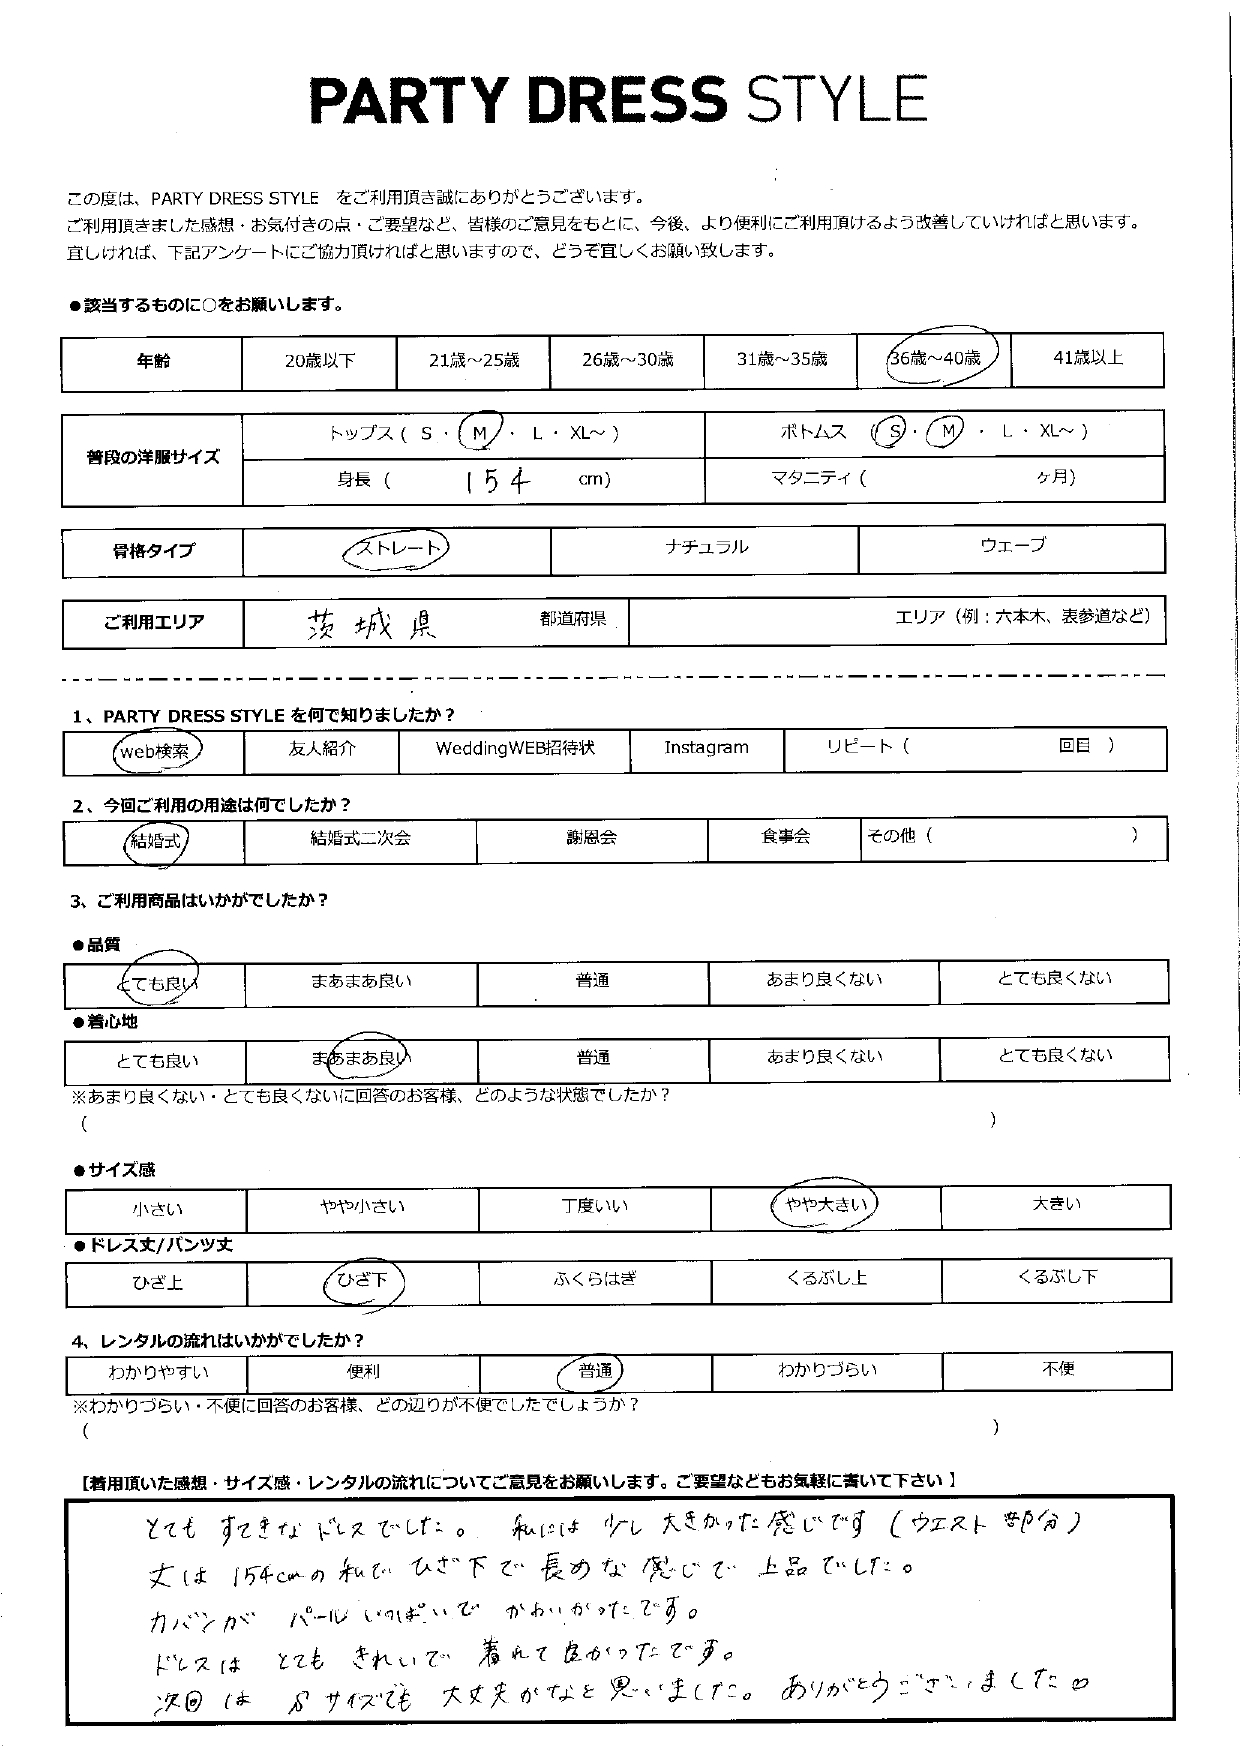 PARTY DRESS STYLE
この度は、PARTY DRESS STYLE をご利用頂き誠にありがとうございます。
ご利用頂きました感想・お気付きの点・ご要望など、皆様のご意見をもとに、今後、より便利にご利用頂けるよう改善していければと思います。
宜しければ、下記アンケートにご協力頂ければと思いますので、どうぞ宜しくお願い致します。
●該当するものに○をお願いします。
年齢 20歳以下 21歳～25歳 26歳～30歳 31歳～35歳 36歳～40歳 41歳以上
普段の洋服サイズ トップス ( S ・ M ・ L ・ XL～ ) ボトムス ( S ・ M ・ L ・ XL～ )
身長 ( 154 cm) マタニティ ( ヶ月)
骨格タイプ ストレート ナチュラル ウェーブ
ご利用エリア 茨城県 都道府県 エリア（例：六本木、表参道など）
1、PARTY DRESS STYLE を何で知りましたか？
web検索 友人紹介 WeddingWEB招待状 Instagram リピート ( 回目 )
2、今回ご利用の用途は何でしたか？
結婚式 結婚式二次会 謝恩会 食事会 その他 ( )
3、ご利用商品はいかがでしたか？
●品質
とても良い まあまあ良い 普通 あまり良くない とても良くない
●着心地
とても良い まあまあ良い 普通 あまり良くない とても良くない
※あまり良くない・とても良くないに回答のお客様、どのような状態でしたか？
( )
●サイズ感
小さい やや小さい 丁度いい やや大きい 大きい
●ドレス丈/パンツ丈
ひざ上 ひざ下 ふくらはぎ くるぶし上 くるぶし下
4、レンタルの流れはいかがでしたか？
わかりやすい 便利 普通 わかりづらい 不便
※わかりづらい・不便に回答のお客様、どの辺りが不便でしたでしょうか？
( )
【着用頂いた感想・サイズ感・レンタルの流れについてご意見をお願いします。ご要望などもお気軽に書いて下さい】
とても すてきな ドレスでした。 私には 少し 大きかった感じです (ウエスト部分)
丈は 154cmの私で ひざ下で 長めな感じで 上品でした。
カバンが パールいっぱいで かわいかったです。
ドレスは とても きれいで 着れて良かったです。
次回は Sサイズでも 大丈夫かなと思いました。 ありがとうございました